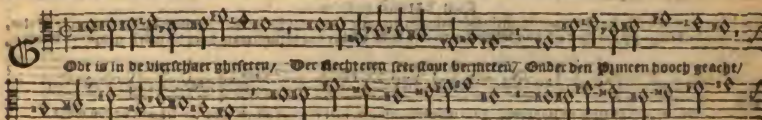 GOdt is in de vierschaer gheseten/ Der Rechteren seer stout vermeten/ Onder den Princen hooch geacht/